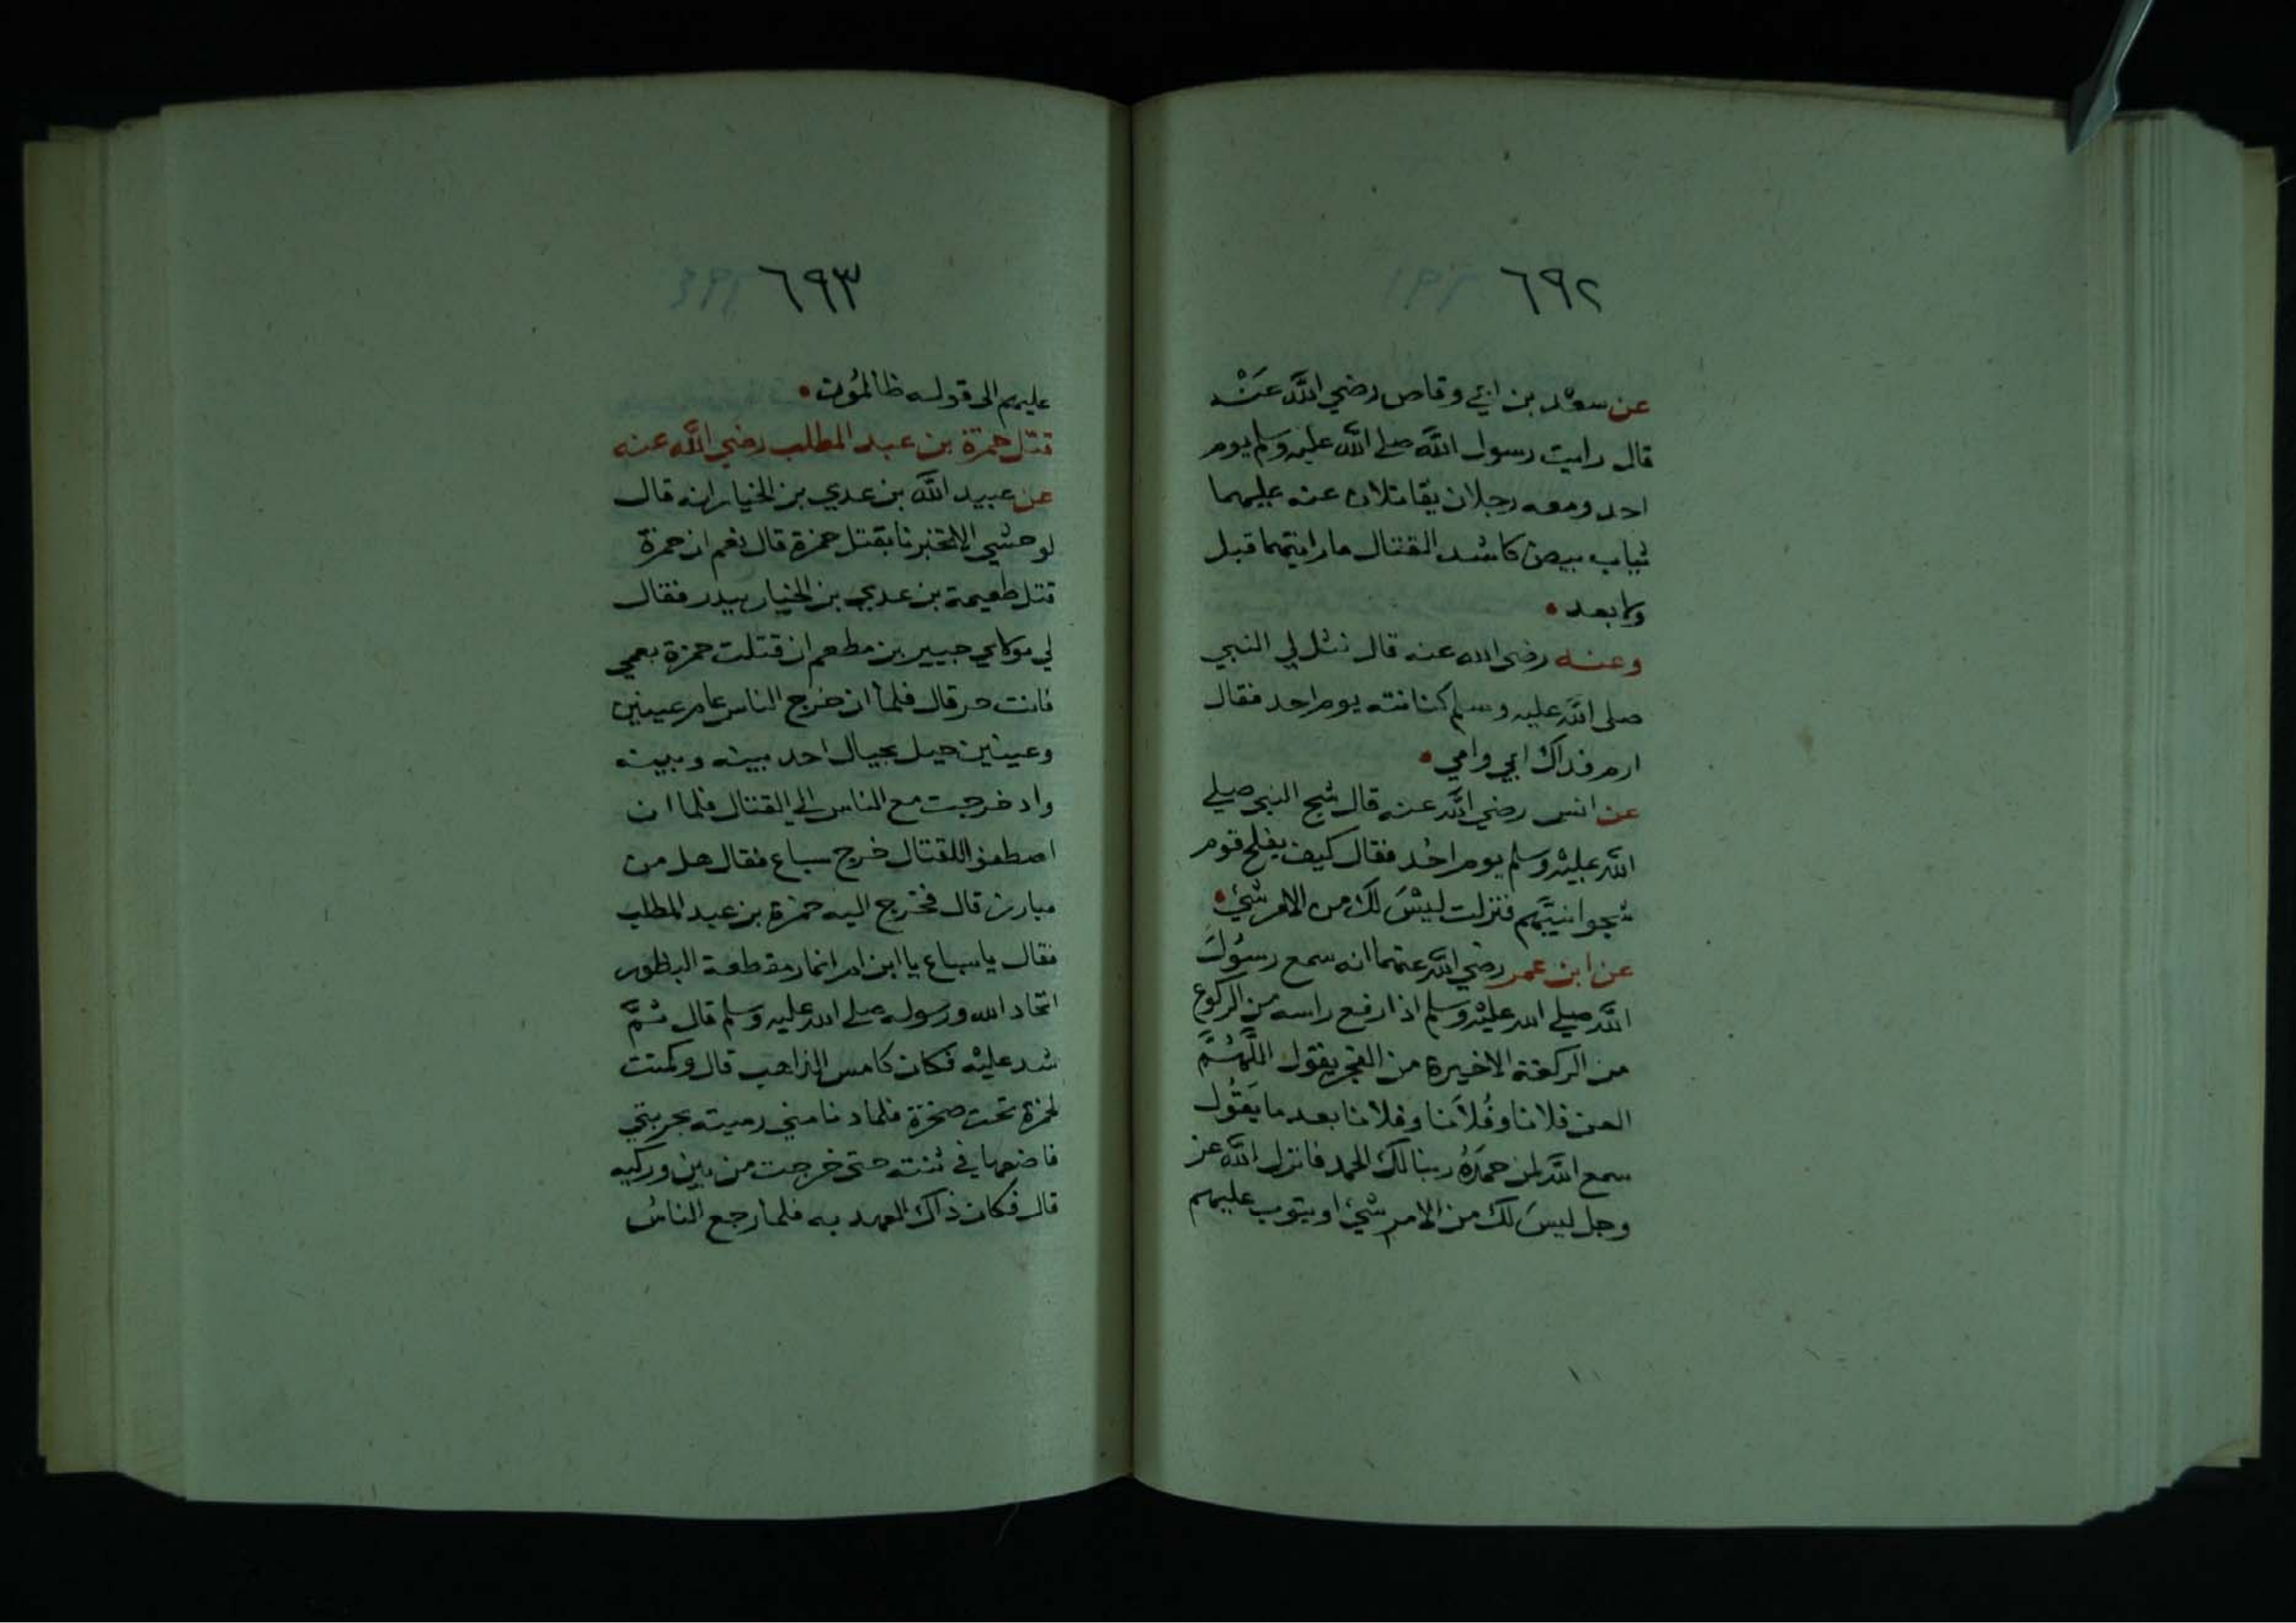 ٦٩٢
عن سعد بن ابي وقاص رضي الله عنه
قال رايت رسول الله صلى الله عليه وسلم يوم
احد ومعه رجلان يقاتلان عنه عليهما
ثياب بيض كاشد القتال ما رايتهما قبل
ولا بعد
وعنه رضي الله عنه قال نثل لي النبي
صلى الله عليه وسلم كنانته يوم احد فقال
ارم فداك ابي وامي
عن انس رضي الله عنه قال شج النبي صلى
الله عليه وسلم يوم احد فقال كيف يفلح قوم
شجوا نبيهم فنزلت ليس لك من الامر شيء
عن ابن عمر رضي الله عنهما انه سمع رسول
الله صلى الله عليه وسلم اذا رفع راسه من الركوع
من الركعة الاخيرة من الفجر يقول اللهم
العن فلانا وفلانا وفلانا بعد ما يقول
سمع الله لمن حمده ربنا لك الحمد فانزل الله عز
وجل ليس لك من الامر شيء او يتوب عليهم
٦٩٣
عليهم الى قوله ظالمون
قتل حمزة بن عبد المطلب رضي الله عنه
عن عبيد الله بن عدي بن الخيار انه قال
لوحشي الا تخبرنا بقتل حمزة قال نعم ان حمزة
قتل طعيمة بن عدي بن الخيار ببدر فقال
لي مولاي جبير بن مطعم ان قتلت حمزة بعمي
فانت حر قال فلما ان خرج الناس عام عينين
وعينين جبل بحيال احد بينه وبينه
واد خرجت مع الناس الى القتال فلما ان
اصطفوا للقتال خرج سباع فقال هل من
مبارز قال فخرج اليه حمزة بن عبد المطلب
فقال يا سباع يا ابن ام انمار مقطعة البظور
اتحاد الله ورسوله صلى الله عليه وسلم قال ثم
شد عليه فكان كامس الذاهب قال وكمنت
لحمزة تحت صخرة فلما دنا مني رميته بحربتي
فاضعها في ثنته حتى خرجت من بين وركيه
قال فكان ذاك العهد به فلما رجع الناس